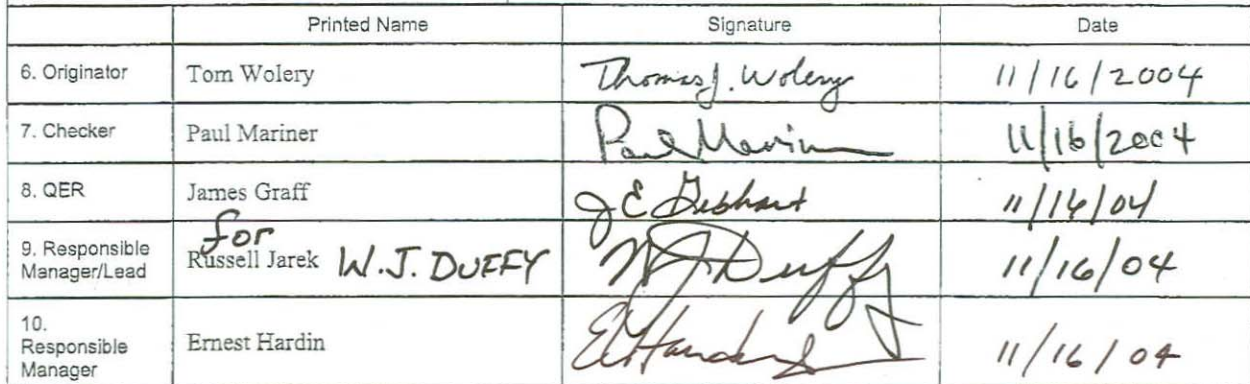 Printed Name Signature Date
6. Originator Tom Wolery Thomas J. Wolery 11/16/2004
7. Checker Paul Mariner Paul Mariner 11/16/2004
8. QER James Graff J E Gebhart 11/16/04
for
9. Responsible Manager/Lead Russell Jarek W.J. DUFFY WJ Duffy 11/16/04
10.
Responsible Manager Ernest Hardin E Hardin 11/16/04